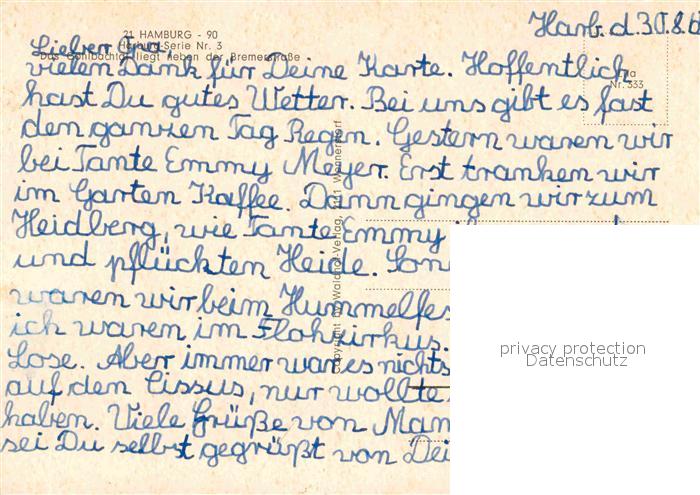 21 HAMBURG - 90
Harburg-Serie Nr. 3
Das Göhlbachtal liegt neben der Bremerstraße
Nr. 333
Harb. d. 30.8.6
Lieber Opa,
vielen Dank für Deine Karte. Hoffentlich
hast Du gutes Wetter. Bei uns gibt es fast
den ganzen Tag Regen. Gestern waren wir
bei Tante Emmy Meyer. Erst tranken wir
im Garten Kaffee. Dann gingen wir zum
Heidberg, wie Tante Emmy
und pflückten Heide. Son
waren wir beim Hummelfes
ich waren im Flohzirkus.
Lose. Aber immer war es nichts
auf den Cissus, nur wollte
haben. Viele Grüße von Mam
sei Du selbst gegrüßt von Dei
privacy protection
Datenschutz